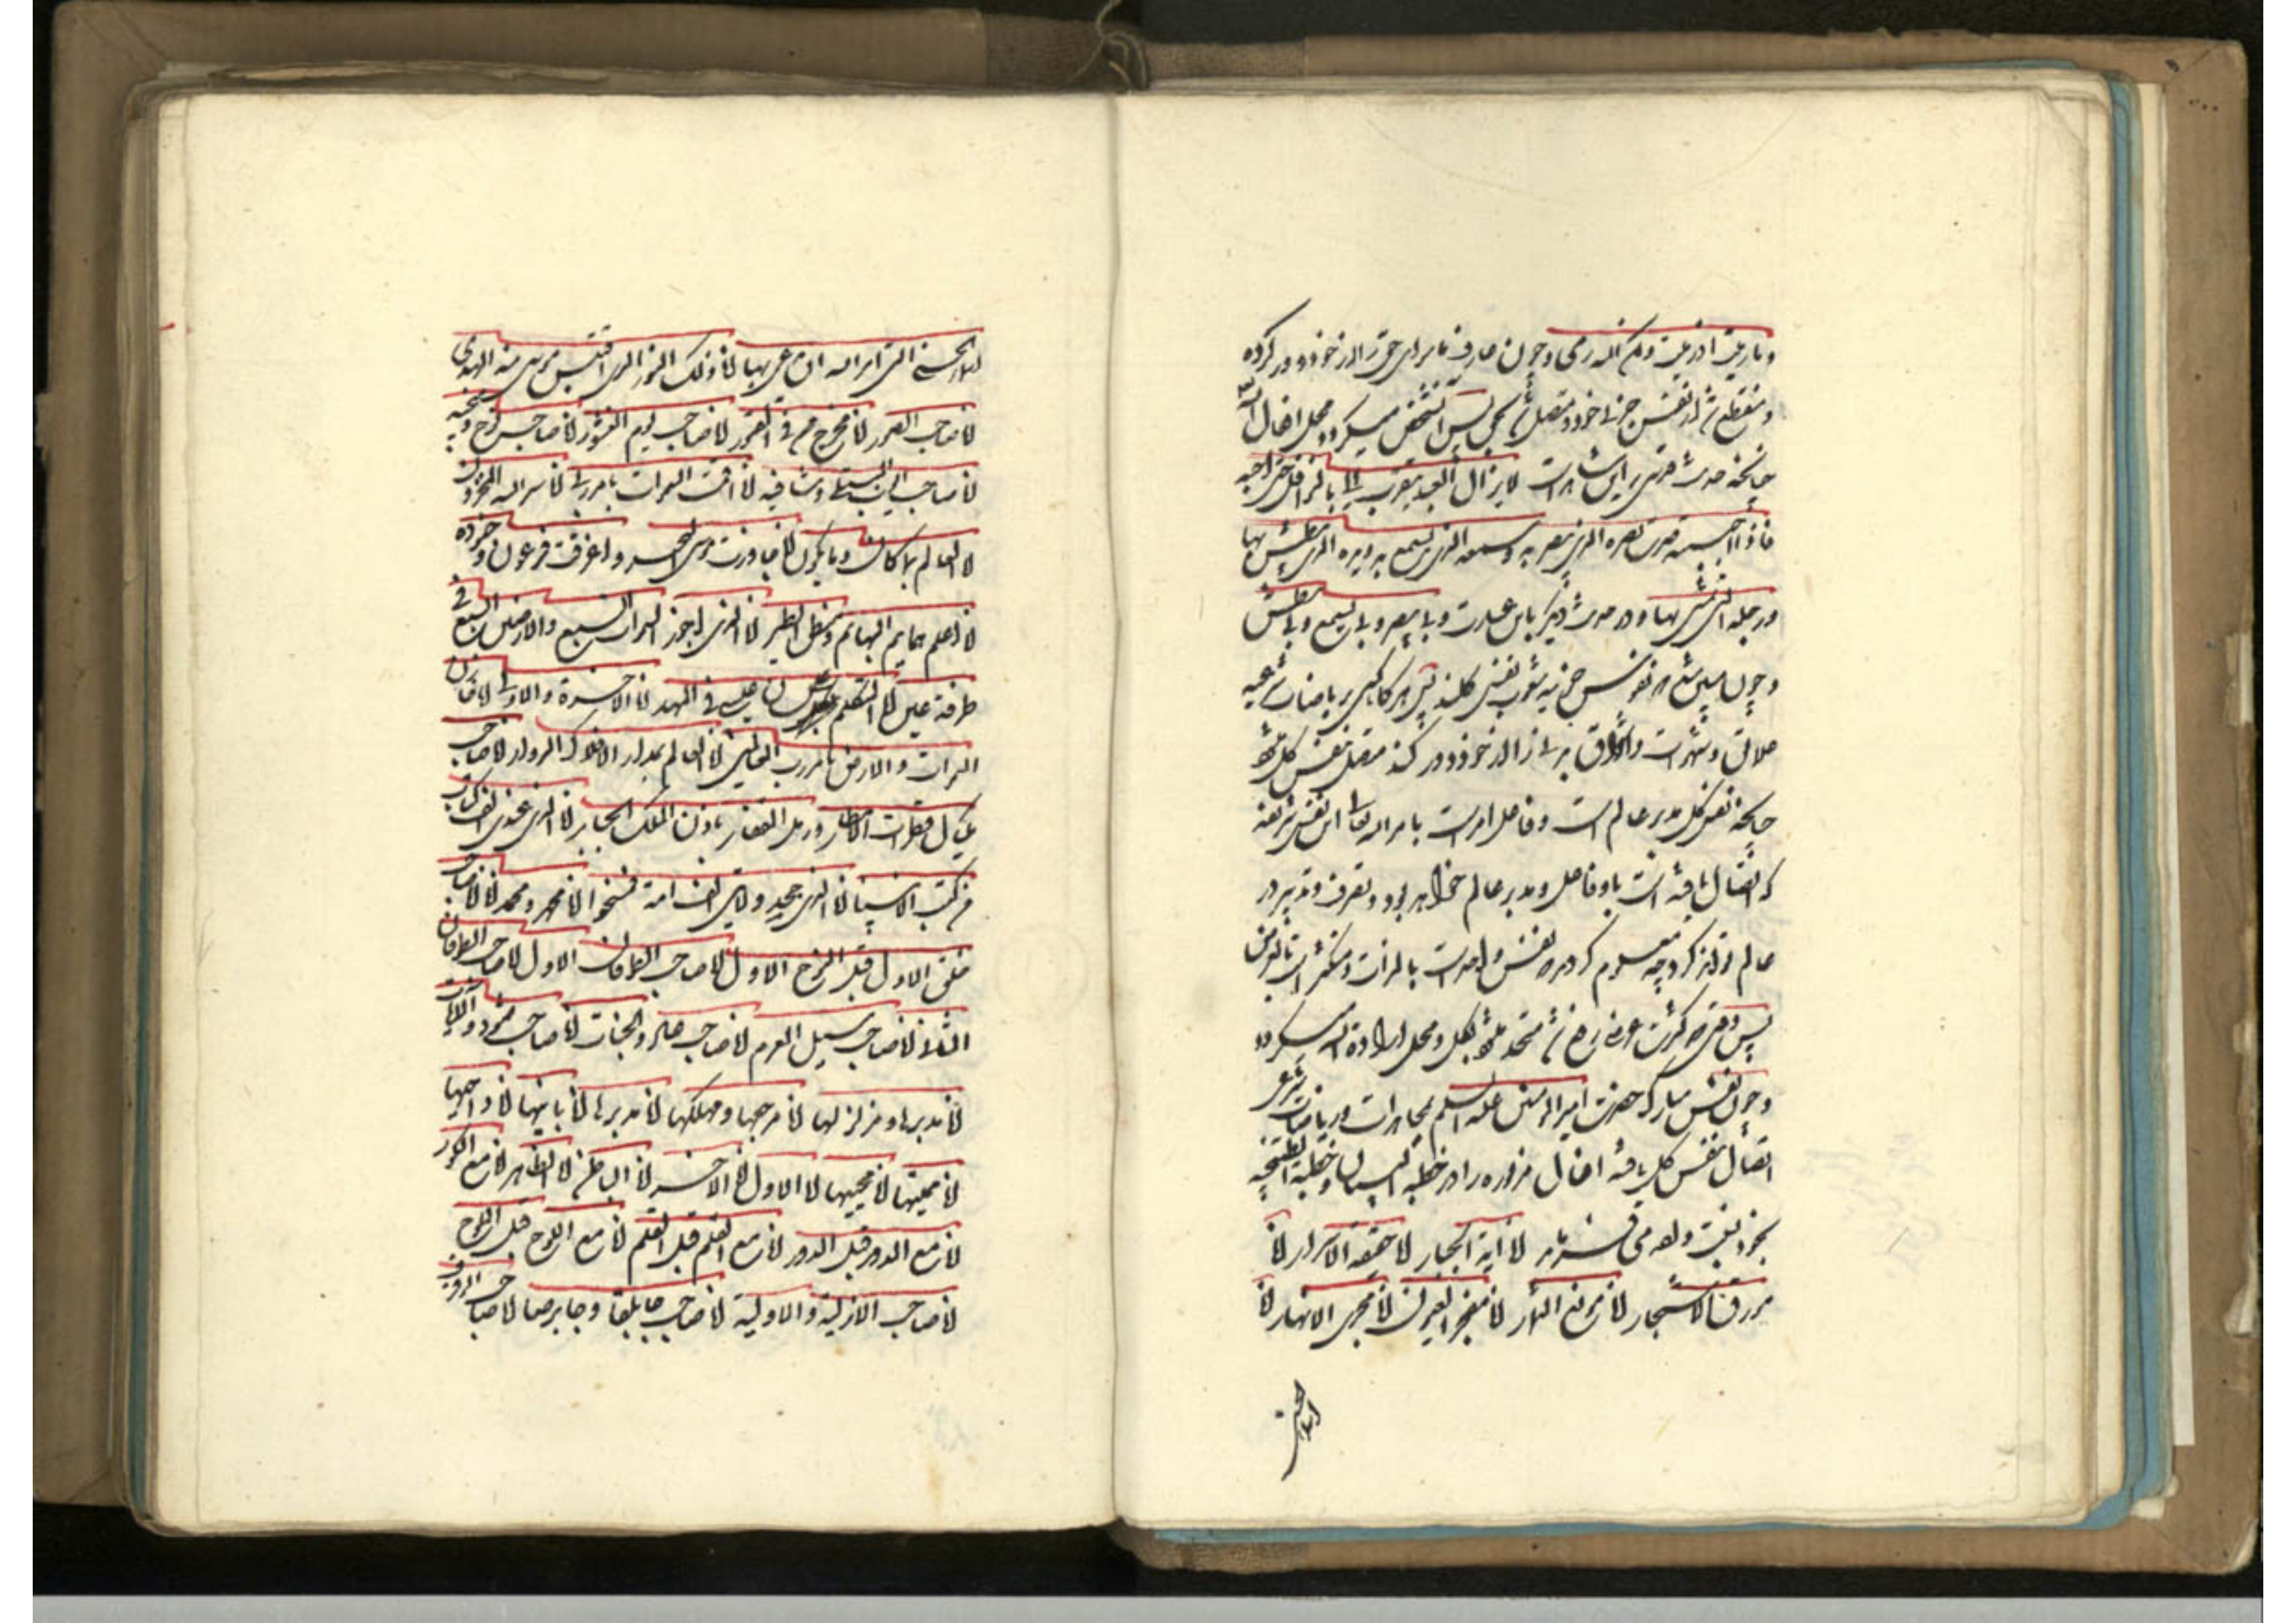 وما رمیت اذ رمیت ولکن الله رمی و چون عارف ماسوای حق را از خود دور کرده
و منقطع شد از نفس جزئی خود و متصل شد بکل پس آن شخص میگردد محل افعال الله
چنانچه حدیث قدسی بر این شاهد است لا یزال العبد یتقرب الی بالنوافل حتی احبه
فاذا احببته صرت بصره الذی یبصر به وسمعه الذی یسمع به ویده الذی یبطش بها
ورجله الذی یمشی بها و در حدیث دیگر باین عبارت وبی یبصر وبی یسمع وبی یبطش
و چون نفوس جزئیه نفس کلند پس هر کاملی بریاضات شرعیه
علائق و شهوات و اخلاق از خود دور کند متصل بنفس کل شود
چنانچه نفس کل مدبر عالم است و فاعل امر است بامر الله تعالی این نفس شریفه
که اتصال یافته است باو فاعل و مدبر عالم خواهد بود و تصرف و تدبیر در
عالم تواند کرد چه معلوم کردی نفس واحد است بالذات و متکثر است
پس وقتی که کثرت عرضی رفع شد متحد بکل و محل اراده الله میگردد
و چون نفس مبارک حضرت امیر المؤمنین علیه السلم بمجاهدات و ریاضات شرعی
اتصال بنفس کل یافته افعال مزبوره را در خطبة البیان و خطبة الططنجیه
بخود نسبت داده می فرماید انا آیة الجبار انا حقیقة الاسرار انا
مورق الاشجار انا مونع الثمار انا مفجر العیون انا مجری الانهار انا
اسماء الحسنی
الاسماء الحسنی التی امر الله ان یدعی بها انا ذلک النور الذی اقتبس موسی منه الهدی
انا صاحب الصور انا مخرج من فی القبور انا صاحب یوم النشور انا صاحب نوح ومنجیه
انا صاحب ایوب المبتلی وشافیه انا اقمت السموات بامر ربی انا سر الله المخزون
انا العالم بما کان وما یکون انا جاوزت موسی البحر واغرقت فرعون وجنوده
انا اعلم هماهم البهائم ومنطق الطیر انا الذی اجوز السموات السبع والارضین السبع فی
طرفة عین انا المتکلم علی لسان عیسی فی المهد انا الآخرة والاولی انا
السموات والارض بامر رب العالمین انا العالم بمدار الافلاک الدوار انا صاحب
مکیال قطرات الامطار ورمل القفار باذن الملک الجبار انا الذی عندی الف کتاب
من کتب الانبیا انا الذی جحد ولایتی الف امة فمسخوا انا محمد ومحمد انا انا صاحب
خلق الاول قبل النوح الاول انا صاحب الطوفان الاول انا صاحب الطوفان
الثانی انا صاحب سیل العرم انا صاحب والجنات انا صاحب ثمود والآیات
انا مدمرها ومزلزلها انا مرجعها ومهلکها انا مدبرها انا بانیها انا داحیها
انا ممیتها انا محییها انا الاول انا الآخر انا الباطن انا الظاهر انا مع الکور
انا مع الدور قبل الدور انا مع القلم قبل القلم انا مع اللوح قبل اللوح
انا صاحب الازلیة والاولیة انا صاحب جابلقا وجابرصا انا صاحب